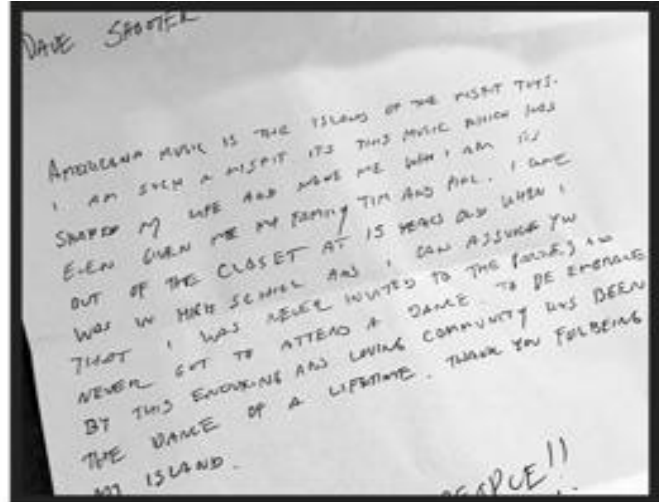 DAVE SHOOTER
AMERICANA MUSIC IS THE ISLAND OF THE MISFIT TOYS.
I AM SUCH A MISFIT. ITS THIS MUSIC WHICH HAS
SHAPED MY LIFE AND MADE ME WHO I AM. ITS
EVEN GIVEN ME MY FAMILY TIM AND PHIL. I CAME
OUT OF THE CLOSET AT 15 YEARS OLD WHEN I
WAS IN HIGH SCHOOL AND I CAN ASSURE YOU
THAT I WAS NEVER INVITED TO THE PARTIES AND
NEVER GOT TO ATTEND A DANCE. TO BE EMBRACE
BY THIS ENDURING AND LOVING COMMUNITY HAS BEEN
THE DANCE OF A LIFETIME. THANK YOU FOR BEING
MY ISLAND.